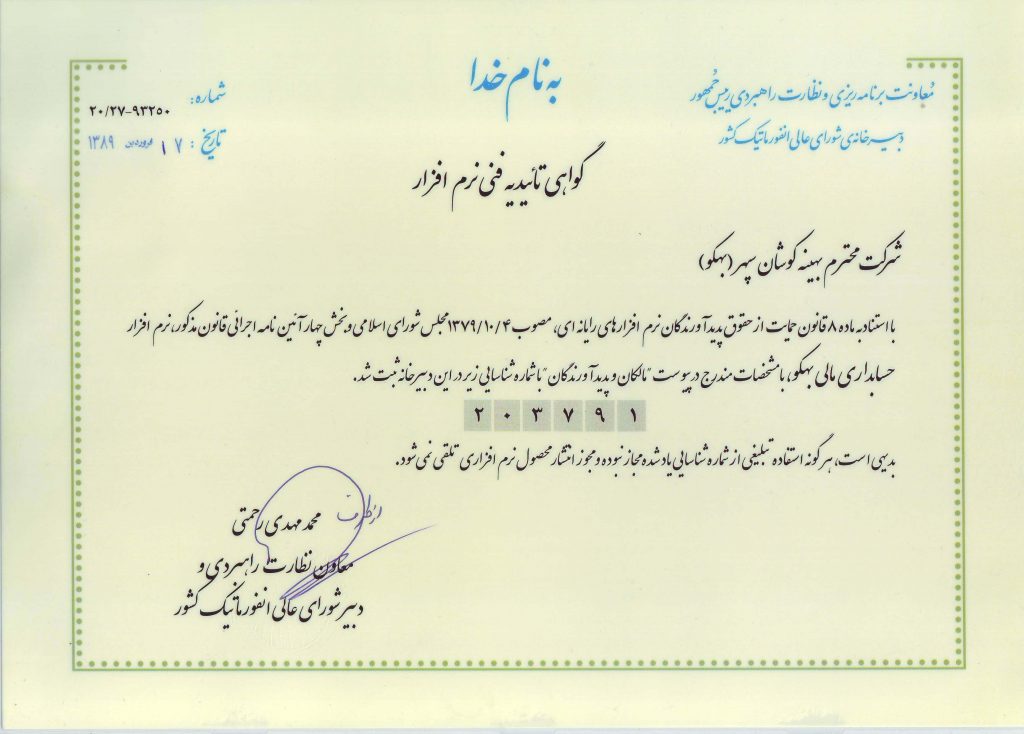 به نام خدا
معاونت برنامه ریزی و نظارت راهبردی رییس جمهور
دبیرخانه‌ی شورای عالی انفورماتیک کشور
شماره: ۲۰/۲۷-۹۳۲۵۰
تاریخ: ۱۷ فروردین ۱۳۸۹
گواهی تائیدیه فنی نرم افزار
شرکت محترم بهینه کوشان سپهر (بهکو)
با استناد به ماده ۸ قانون حمایت از حقوق پدیدآورندگان نرم افزارهای رایانه ای، مصوب ۱۳۷۹/۱۰/۴ مجلس شورای اسلامی و بخش چهار آئین نامه اجرائی قانون مذکور، نرم افزار
حسابداری مالی بهکو، با مشخصات مندرج در پیوست "مالکان و پدیدآورندگان" با شماره شناسایی زیر در این دبیرخانه ثبت شد.
۲ ۰ ۳ ۷ ۹ ۱
بدیهی است، هرگونه استفاده تبلیغی از شماره شناسایی یاد شده مجاز نبوده و مجوز انتشار محصول نرم افزاری تلقی نمی شود.
از طرف
محمد مهدی رحمتی
معاون نظارت راهبردی و
دبیر شورای عالی انفورماتیک کشور